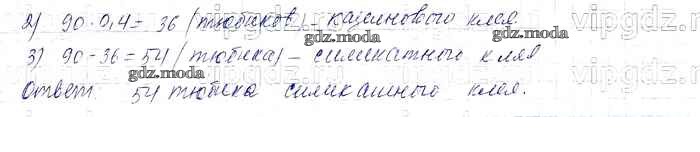 2) 90 · 0,4 = 36 (тюбиков) - казеинового клея
gdz.moda
gdz.moda
3) 90 - 36 = 54 (тюбика) - силикатного клея
gdz.moda
vipgdz
Ответ: 54 тюбика силикатного клея.